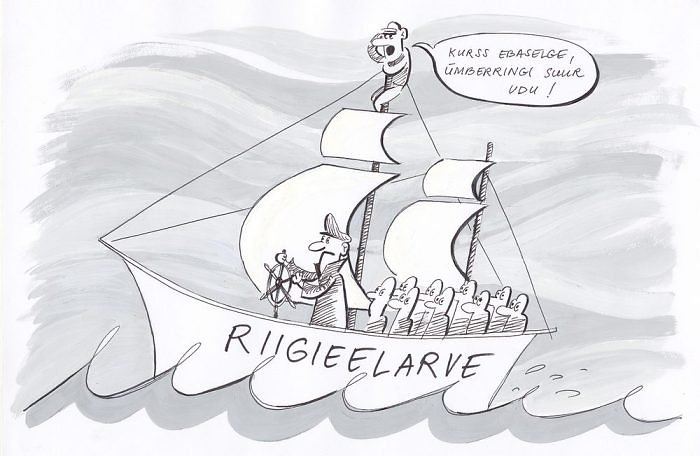 KURSS EBASELGE,
ÜMBERRINGI SUUR
UDU!
RIIGIEELARVE